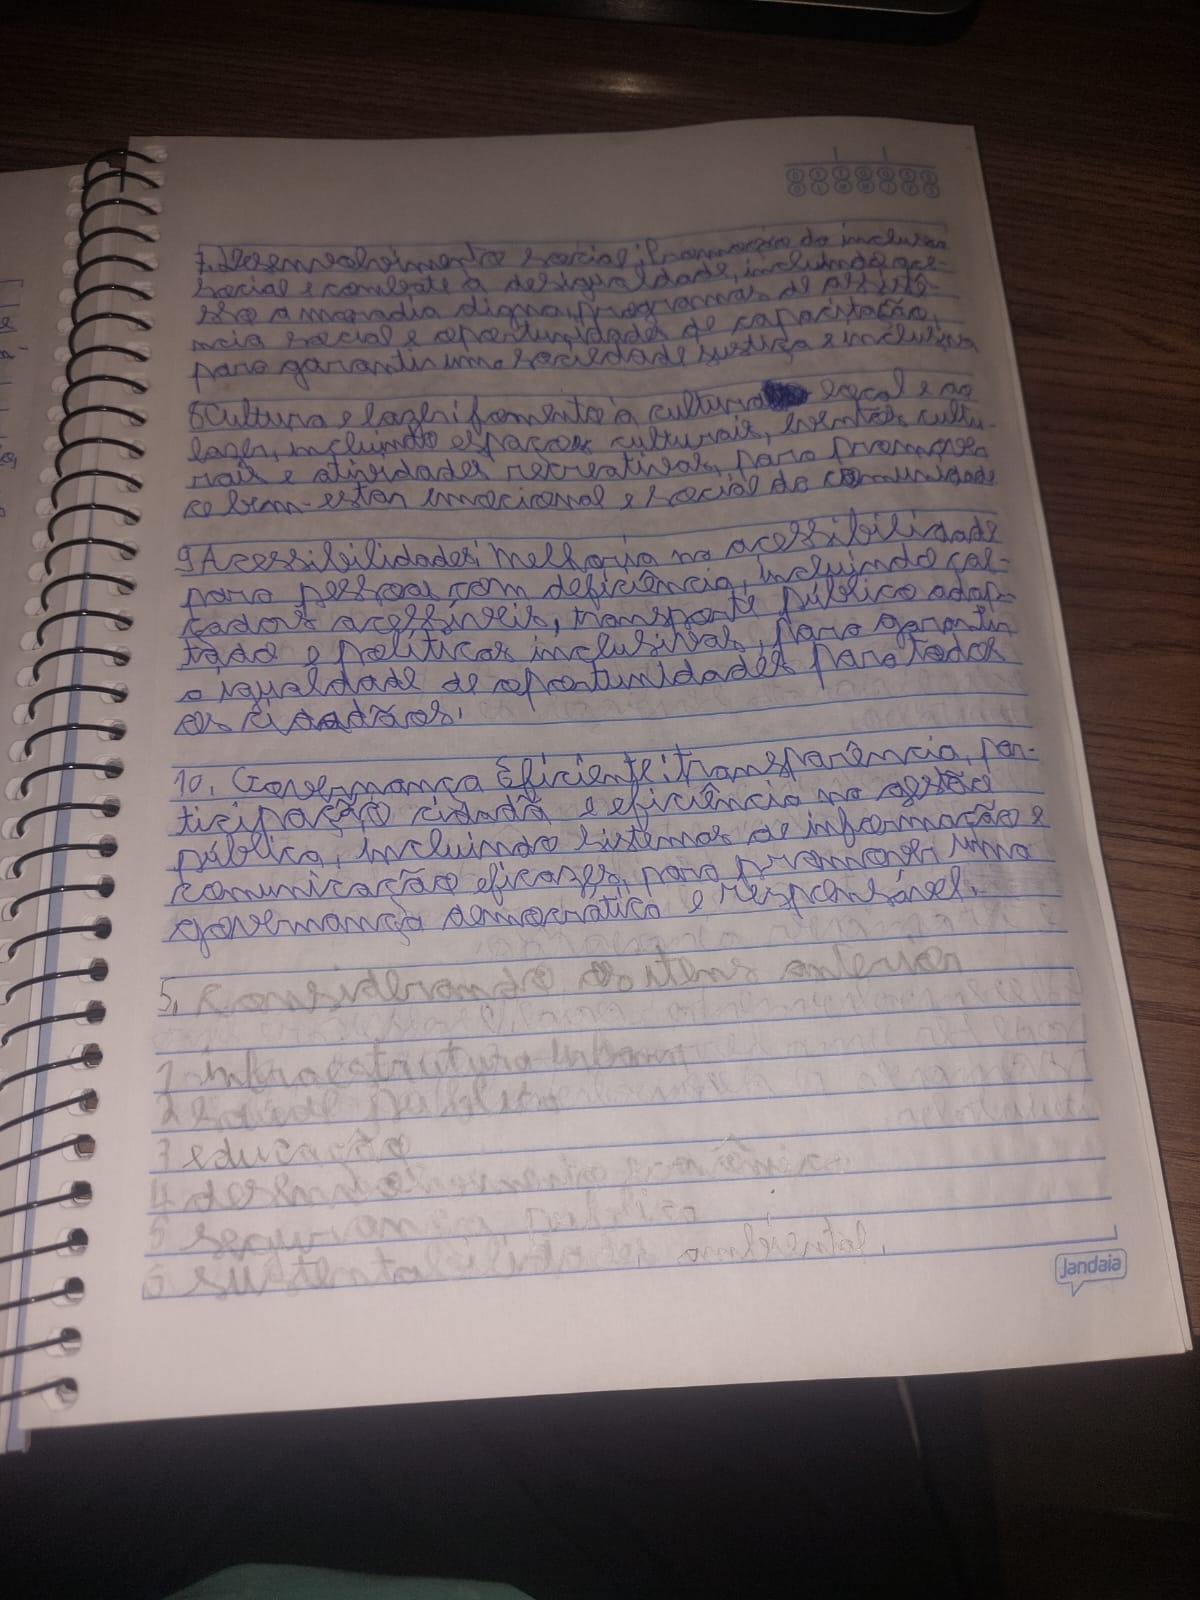 7. Desenvolvimento social: Promoção da inclusão
social e combate à desigualdade, incluindo ace-
sso a moradia digna, programas de assistê-
ncia social e oportunidades de capacitação,
para garantir uma sociedade justiça e inclusiva
8 Cultura e lazer: fomento à cultura local e ao
lazer, incluindo espaços culturais, eventos cultu-
rais e atividades recreativas, para promover
o bem-estar emocional e social da comunidade
9 Acessibilidades: Melhoria na acessibilidade
para pessoas com deficiência, incluindo cal-
çados acessíveis, transporte público adap-
tado e políticas inclusivas, para garantir
a igualdade de oportunidades para todos
os cidadãos.
10. Governança Eficiente: transparência, par-
ticipação cidadã e eficiência na gestão
pública, incluindo sistemas de informação e
comunicação eficazes, para promover uma
governança democrático e responsável.
5,
1 infraestrutura urbana
2 saúde pública
3 educação
4
5 segurança pública
6
Jandaia